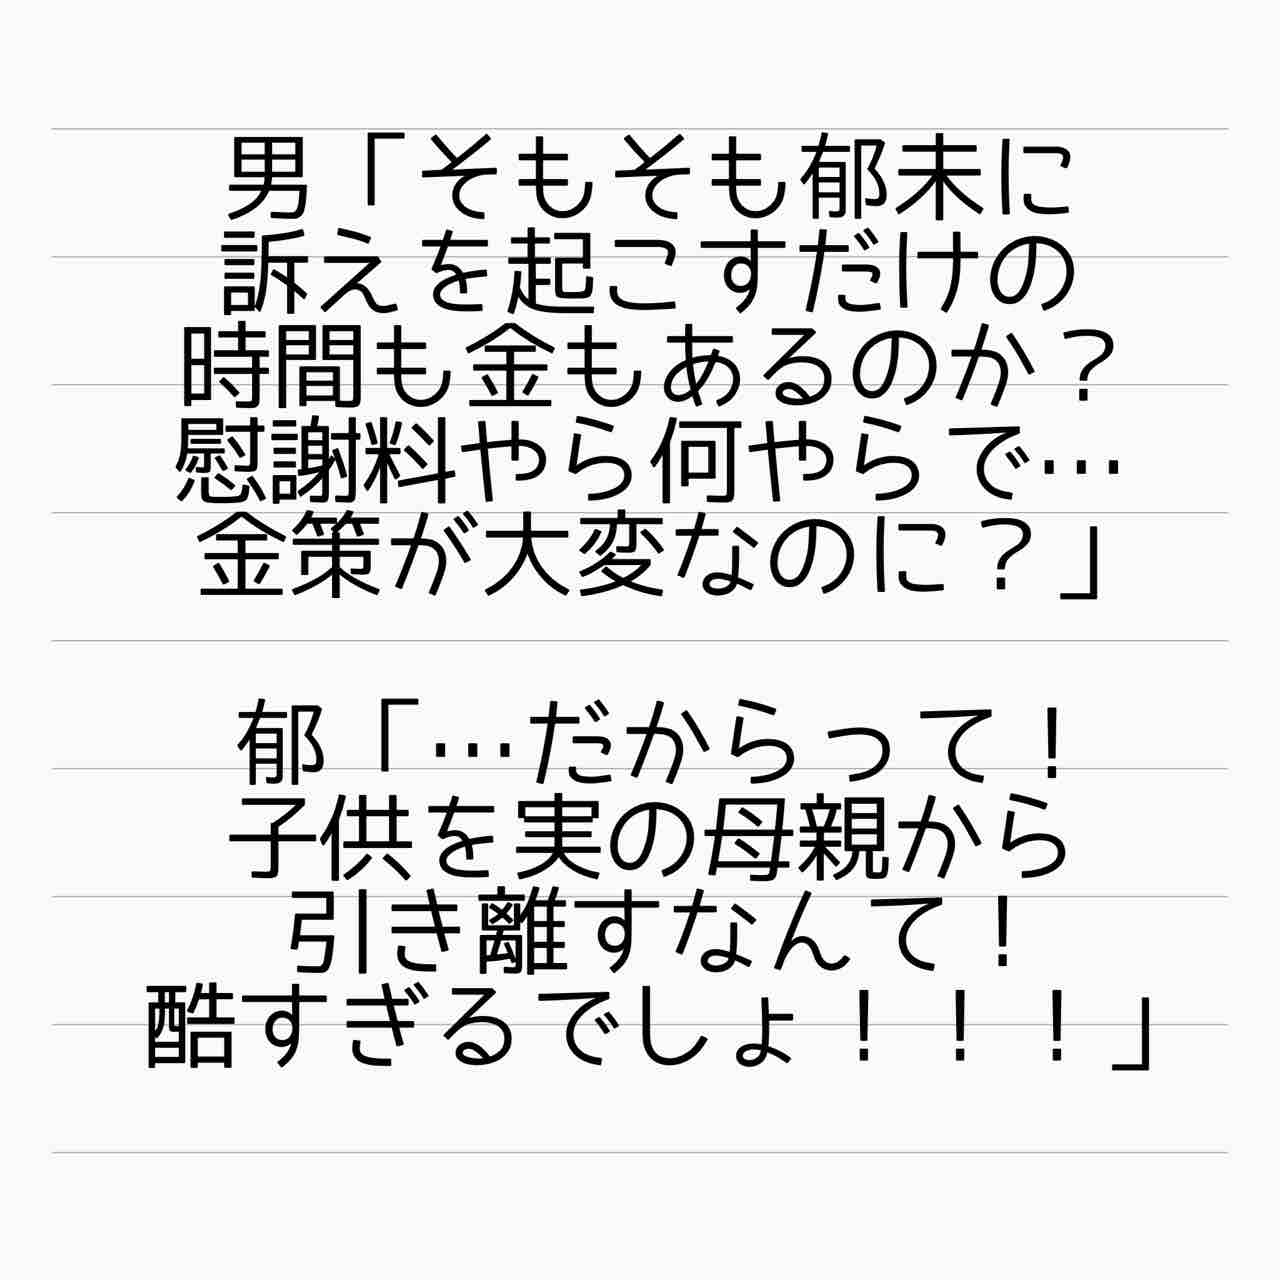 男「そもそも郁未に
訴えを起こすだけの
時間も金もあるのか？
慰謝料やら何やらで…
金策が大変なのに？」
郁「…だからって！
子供を実の母親から
引き離すなんて！
酷すぎるでしょ！！！」